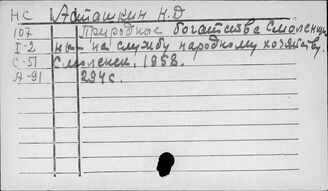 НС Асташкин Н.Д
107 Природные богатства Смоленщи
I-2 ны - на службу народному хозяйству.
С-51 Смоленск, 1958.
А-91 294с.